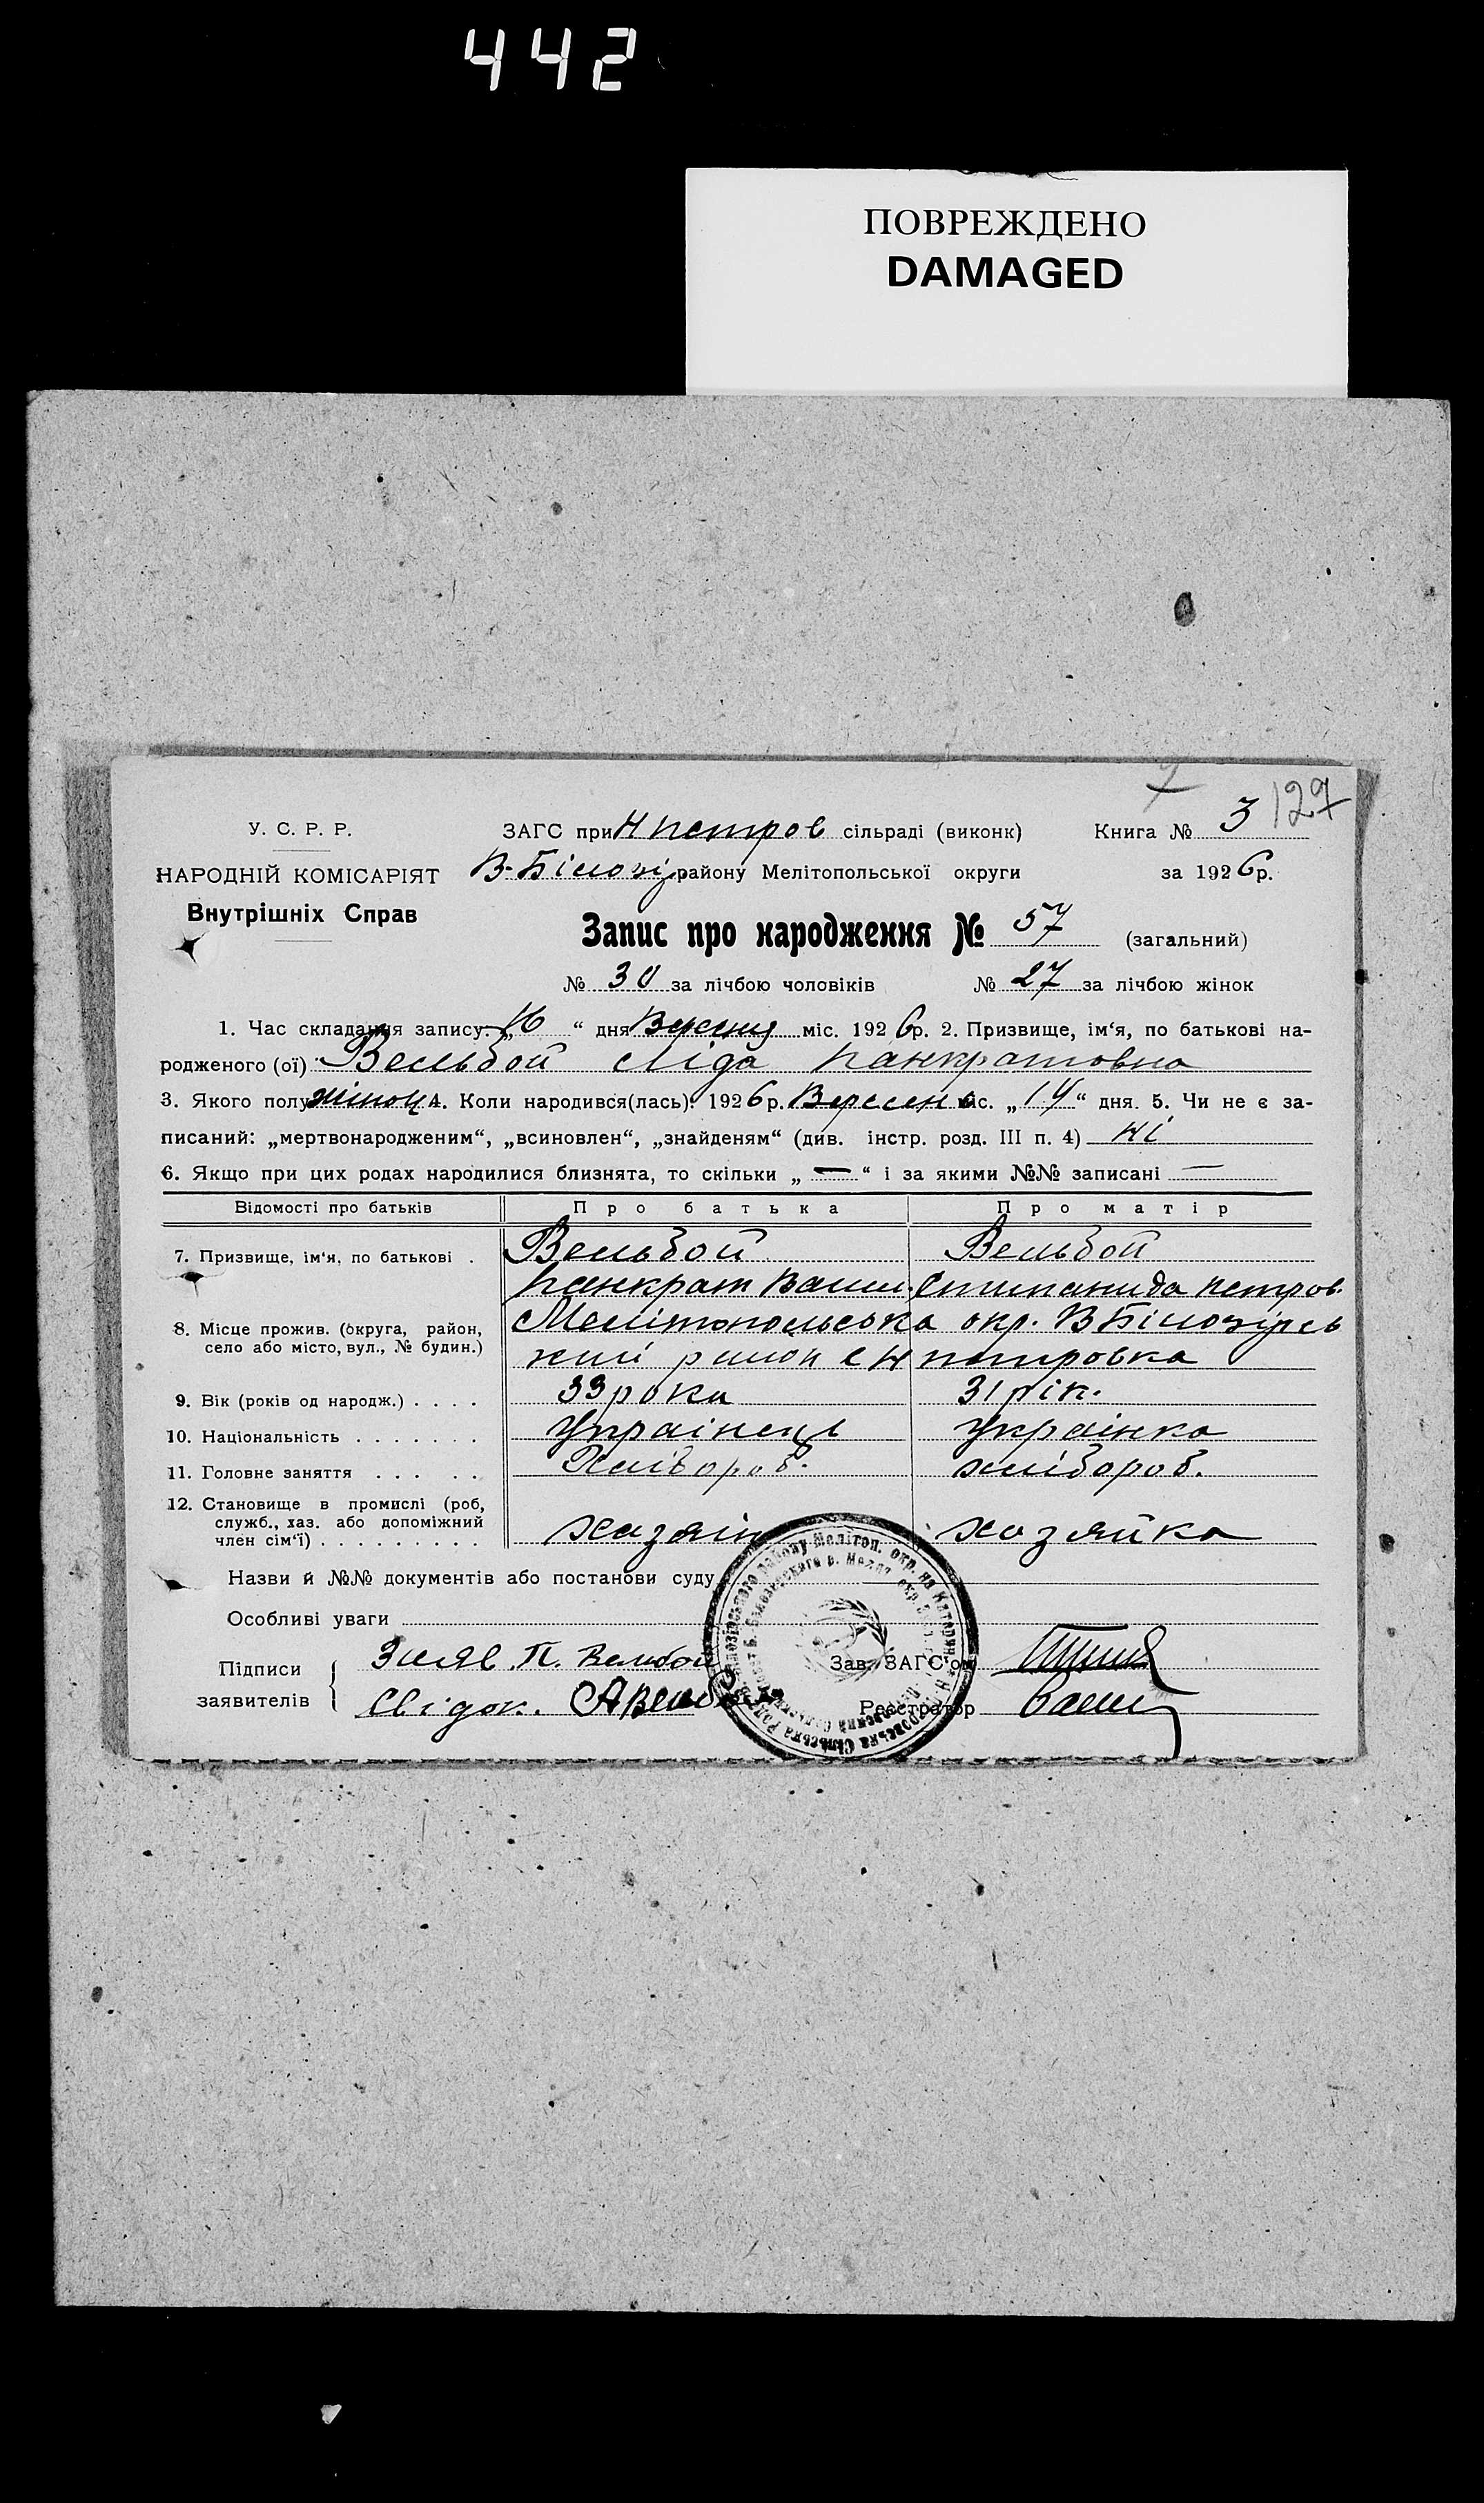 442
ПОВРЕЖДЕНО
DAMAGED
7
127
У. С. Р. Р.
ЗАГС при Н петров сільраді (виконк)
Книга № 3
НАРОДНІЙ КОМІСАРІЯТ
В-Білозір району Мелітопольської округи
за 1926 р.
Внутрішніх Справ
Запис про народження № 57 (загальний)
№ 30 за лічбою чоловіків № 27 за лічбою жінок
1. Час складання запису: „16“ дня Вересня міс. 1926 р. 2. Призвище, ім‘я, по батькові на-
родженого (ої) Вельбой Ліда Панкратовна
3. Якого полу жіноч 4. Коли народився(лась): 1926 р. Вересень міс. „14“ дня. 5. Чи не є за-
писаний: „мертвонародженим“, „всиновлен“, „знайденям“ (див. інстр. розд. III п. 4) Ні
6. Якщо при цих родах народилися близнята, то скільки „—“ і за якими №№ записані —
Відомості про батьків Про батька Про матір
7. Призвище, ім‘я, по батькові . Вельбой Вельбой
Панкрат Васил. Стипанида петров.
8. Місце прожив. (округа, район, село або місто, вул., № будин.) Мелітопольська окр. В Білозірсь
кий район с Н петровка
9. Вік (років од народж.) . . . . 33 рока 31 рік.
10. Національність . . . . . . . Украінець Украінка
11. Головне заняття . . . . . Хлібороб. хлібороб.
12. Становище в промислі (роб,
служб., хаз. або допоміжний
член сім‘ї) . . . . . . . . . хазяін хозяйка
Назви й №№ документів або постанови суду
Особливі уваги
Підписи заявителів
Заяв. П. Вельбой
Свідок.
Зав. ЗАГС‘ом
Реєстратор